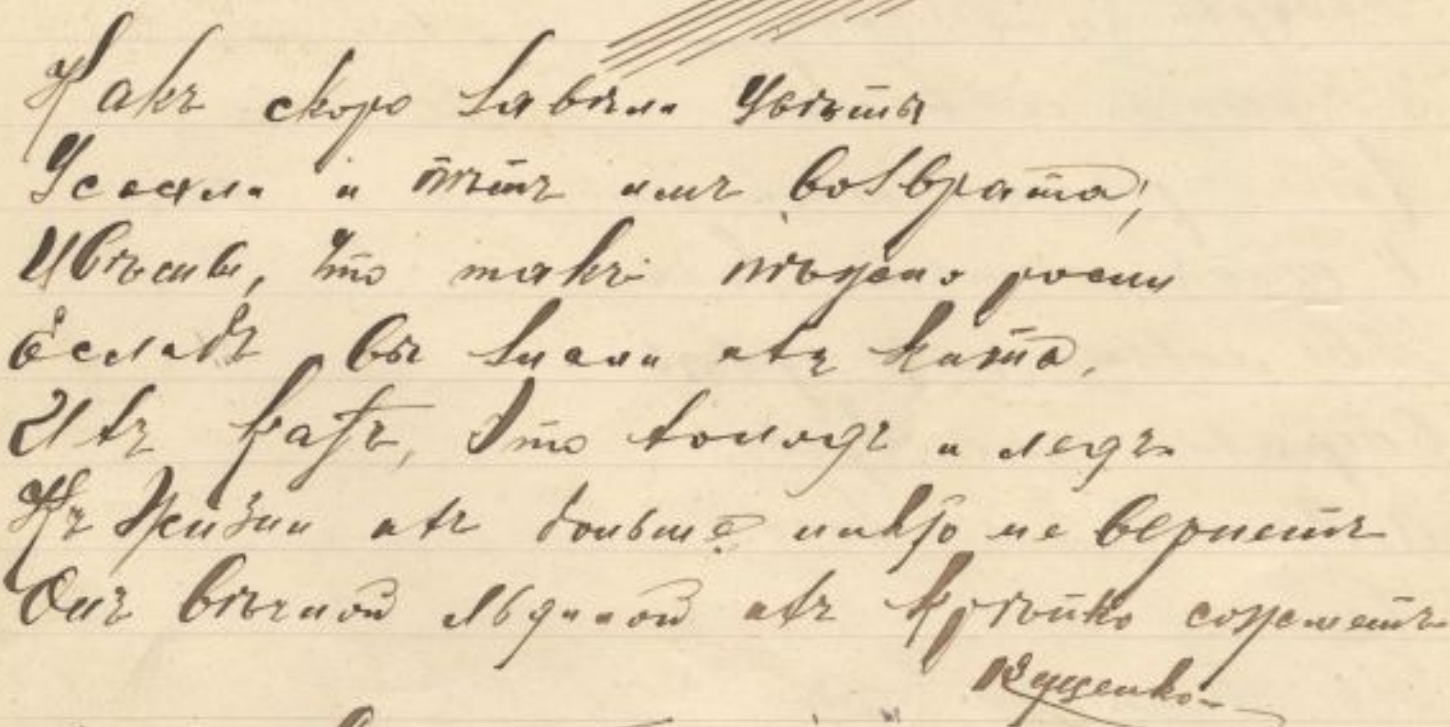 Какъ скоро завяли цвѣты
Усохли и нѣтъ имъ возврата,
Цвѣсть, Что такъ нѣжно росли
Еслабъ вы знали ихъ ката.
Ихъ катъ, Это холодъ и ледъ
Къ Жизни ихъ больше никто не вернетъ
Онъ вѣчной льдиной ихъ Крѣпко сожметъ
Куценко